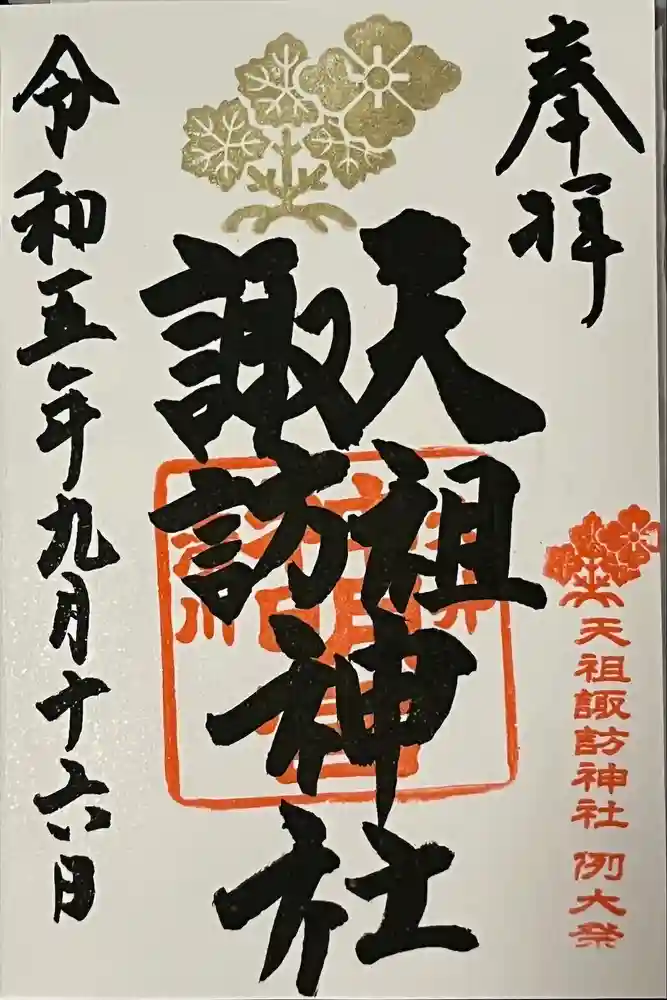 奉拝
天祖神社
諏訪神社
令和五年九月十六日
天祖諏訪神社 例大祭